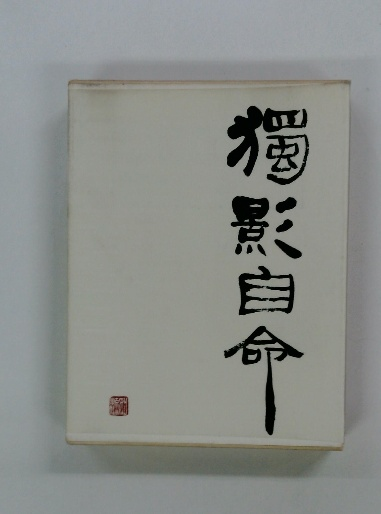 獨影自命